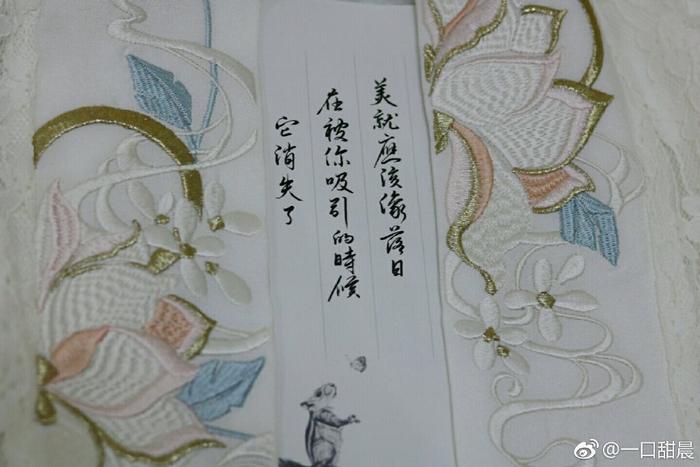 美就應该像落日
在被你吸引的時候
它消失了
@一口甜晨